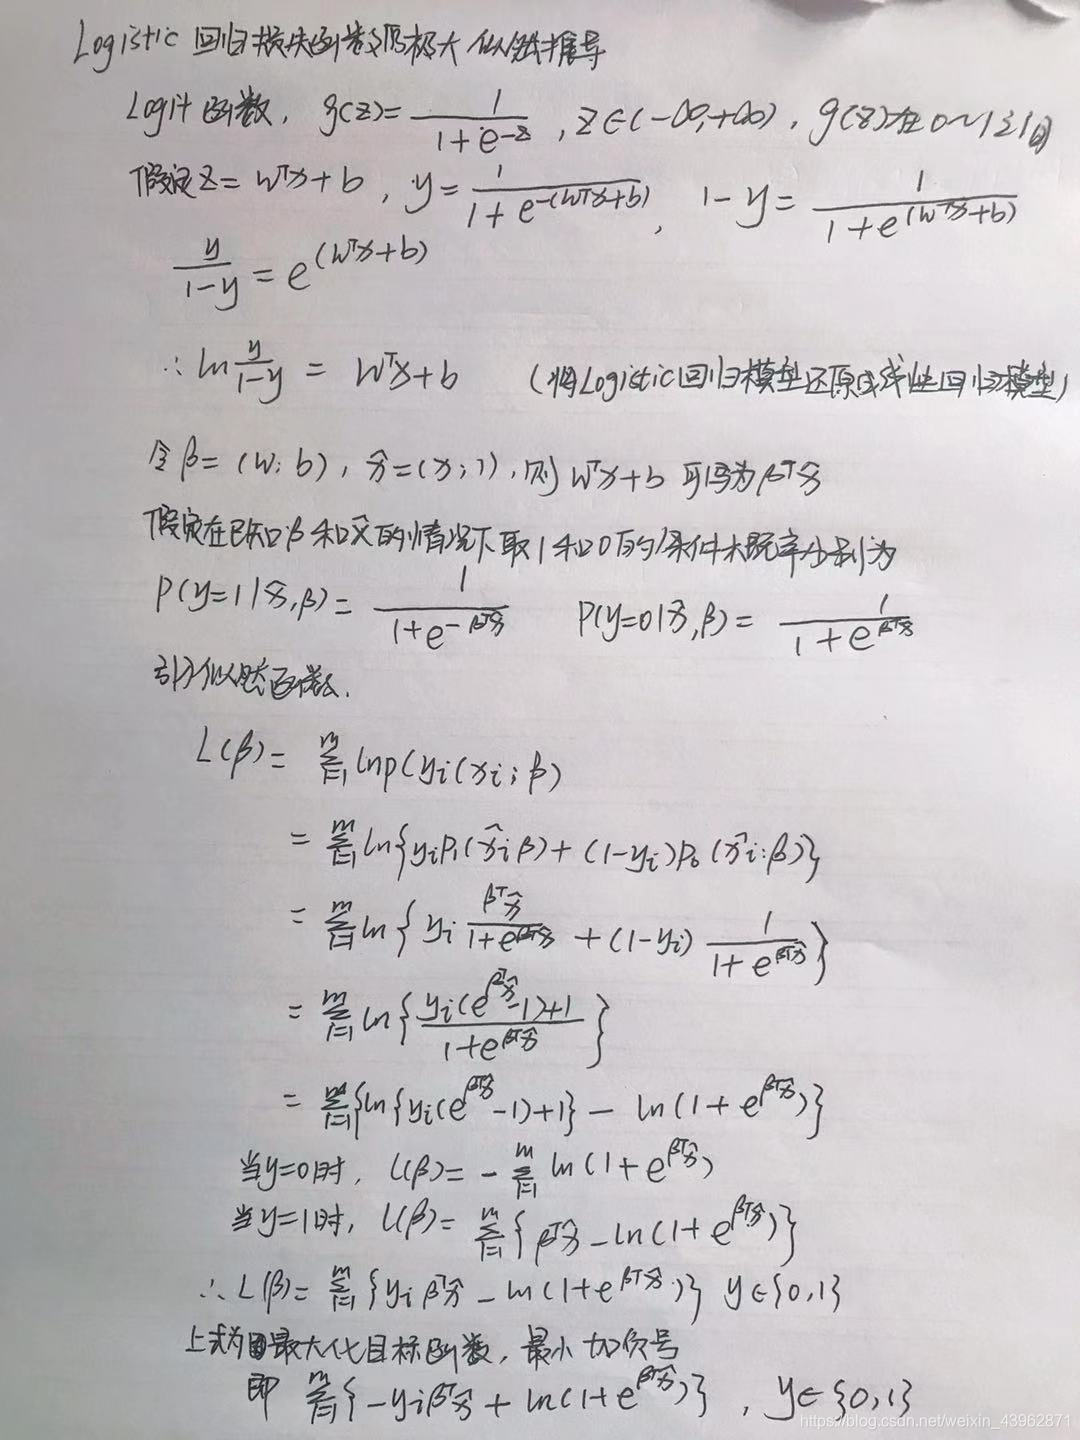 Logistic 回归损失函数的极大似然推导
Logit 函数, g(z)= 1/(1+e^{-z}), z∈(-∞,+∞), g(z)在0~1之间
假定z= wᵀx+b, y= 1/(1+e^{-(wᵀx+b)}), 1-y= 1/(1+e^{(wᵀx+b)})
y/(1-y) = e^{(wᵀx+b)}
∴ ln y/(1-y) = wᵀx+b (将Logistic回归模型还原成线性回归模型)
令β=(w; b), x̂=(x;1), 则 wᵀx+b 可写为βᵀx̂
假定在已知β和x̂的情况下取1和0的条件概率分别为
P(y=1|x̂,β)= 1/(1+e^{-βᵀx̂}) P(y=0|x̂,β)= 1/(1+e^{βᵀx̂})
引入似然函数.
L(β)= Σ_{i=1}^{m} lnp(yᵢ(xᵢ;β)
= Σ_{i=1}^{m} ln{yᵢp₁(x̂ᵢβ)+(1-yᵢ)p₀(x̂ᵢ:β)}
= Σ_{i=1}^{m} ln{yᵢ βᵀx̂/(1+e^{βᵀx̂}) +(1-yᵢ) 1/(1+e^{βᵀx̂})}
= Σ_{i=1}^{m} ln{(yᵢ(e^{βᵀx̂}-1)+1)/(1+e^{βᵀx̂})}
= Σ_{i=1}^{m}{ln{yᵢ(e^{βᵀx̂}-1)+1} - ln(1+e^{βᵀx̂})}
当y=0时, L(β)= - Σ_{i=1}^{m} ln(1+e^{βᵀx̂})
当y=1时, L(β)= Σ_{i=1}^{m}{βᵀx̂-ln(1+e^{βᵀx̂})}
∴ L(β)= Σ_{i=1}^{m}{yᵢβᵀx̂-ln(1+e^{βᵀx̂})} y∈{0,1}
上式为最大化目标函数, 最小加负号
即 Σ_{i=1}^{m}{-yᵢβᵀx̂+ln(1+e^{βᵀx̂})}, y∈{0,1}
https://blog.csdn.net/weixin_43962871